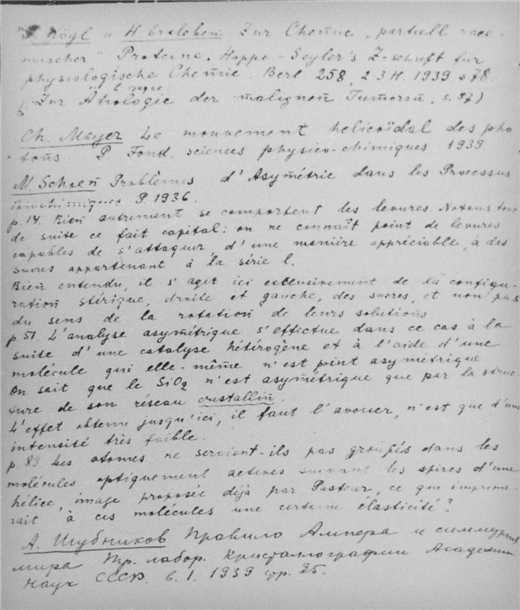 F. Kögl u H. Erxleben Zur Chemie „partiell race-
mischer" Proteine. Hoppe-Seyler's Z-schrift für
physiologische Chemie. Berl 258, 2 3 H. 1939 s 78.
(Zur Ätiologie der malignen Tumoren, s. 57)
Ch. Mayer Le mouvement hélicoïdal des pho-
tons P. Fond. sciences physico-chimiques 1939
M. Schoen Problèmes d'Asymétrie dans les Processus
P. 1936.
p. 14. Bien autrement se comportent les levures. Notons tout
de suite ce fait capital: on ne connaît point de levures
capables de s'attaquer d'une manière appréciable, à des
sucres appartenant à la série l.
Bien entendu, il s'agit ici exclusivement de la configu-
ration stérique, droite et gauche, des sucres, et non pas
du sens de la rotation de leurs solutions
p 51 L'analyse asymétrique s'effectue dans ce cas à la
suite d'une catalyse hétérogène et à l'aide d'une
molécule qui elle-même n'est point asymétrique
On sait que le SiO2 n'est asymétrique que par la struc-
ture de son réseau cristallin.
L'effet obtenu jusqu'ici, il faut l'avouer, n'est que d'une
intensité très faible.
p. 89 Les atomes ne seraient-ils pas groupés dans les
molécules optiquement actives suivant les spires d'une
hélice, image proposée déjà par Pasteur, ce que imprime-
rait à ces molécules une certaine élasticité?
А. Шубников Правило Ампера и симметрия
мира Тр. лабор. Кристаллографии Академии
Наук СССР. в. 1. 1939 стр. 25.